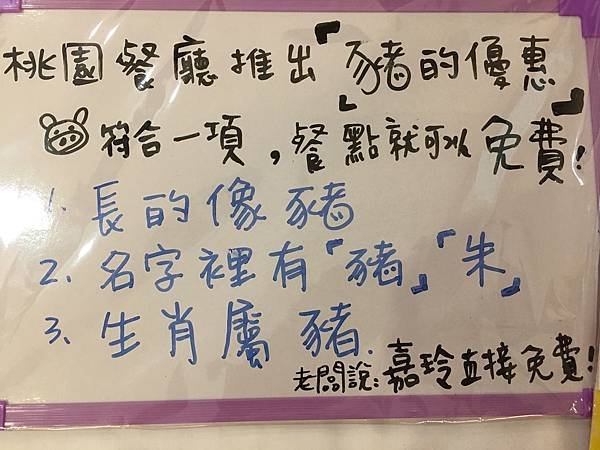 桃園餐廳推出「豬的優惠」
符合一項，餐點就可以免費！
1. 長的像豬
2. 名字裡有「豬」「朱」
3. 生肖屬豬.
老闆說：嘉玲直接免費！